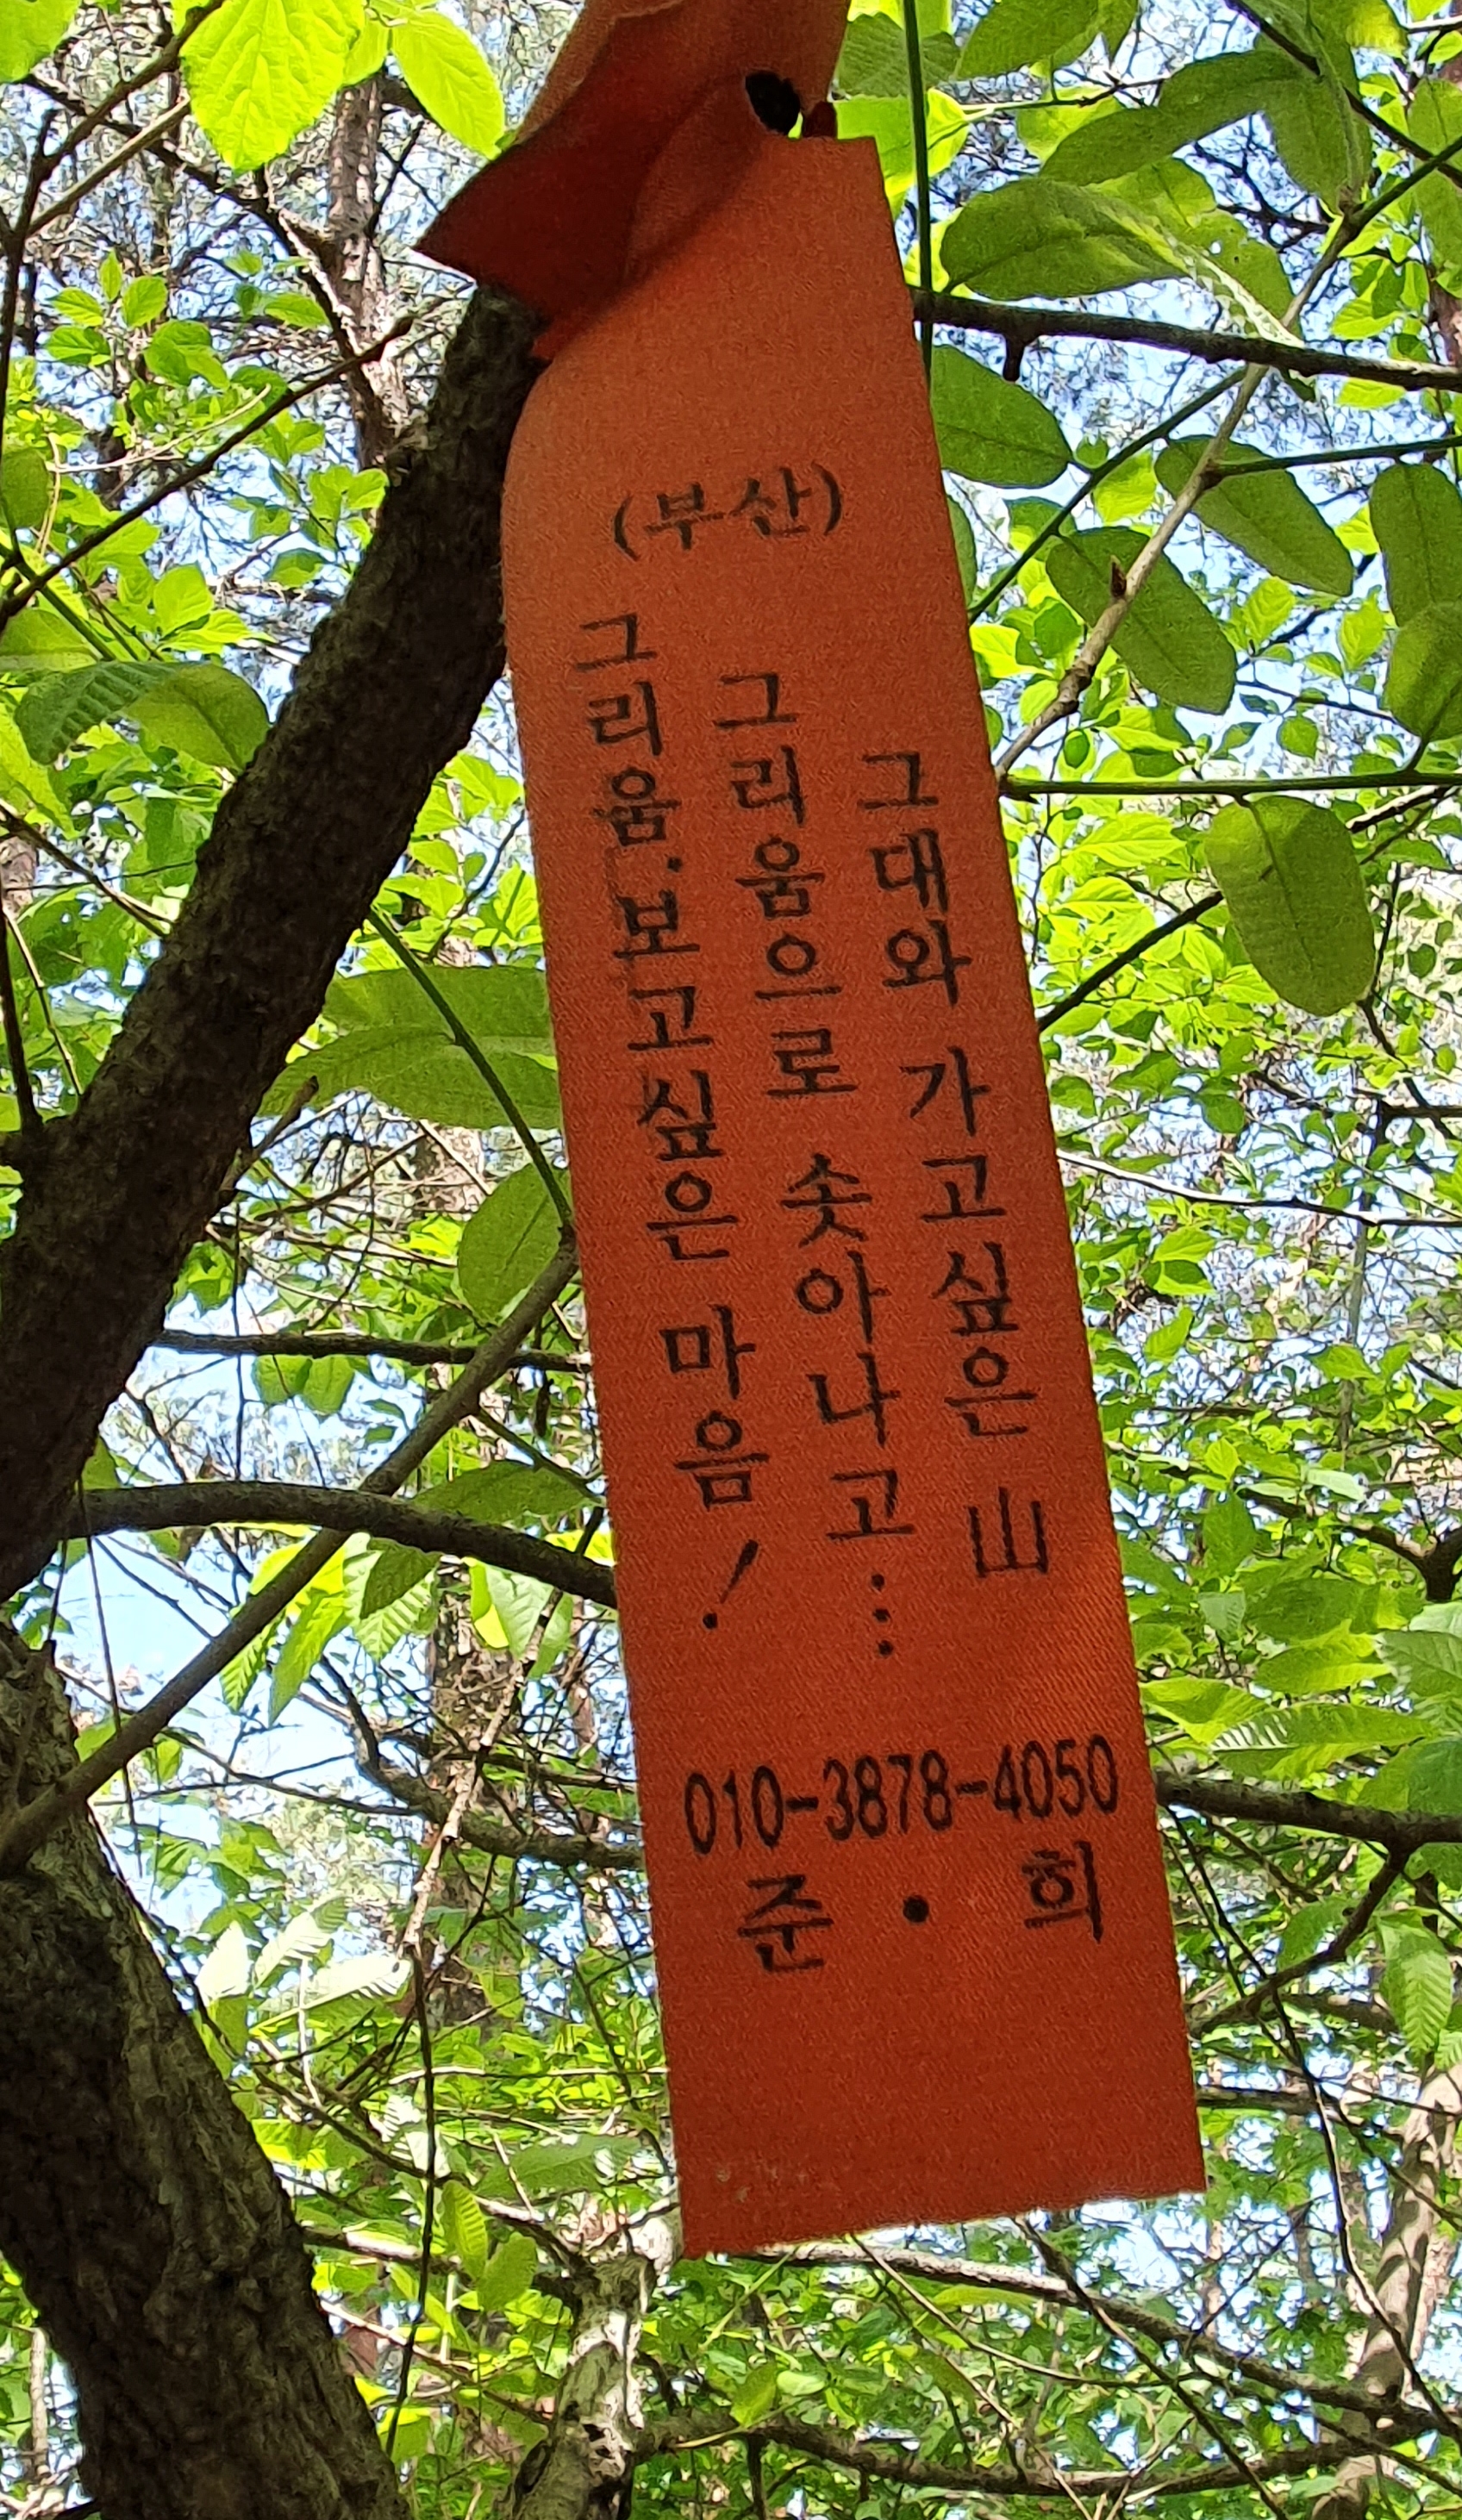 (부산)
그대와 가고싶은 山
그리움으로 솟아나고⋮
그리움·보고싶은 마음!
010-3878-4050
준 • 희